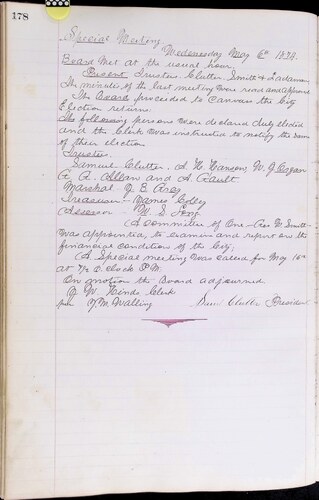 178
Special Meeting
Wednesday May 6th 1874.
Board Met at the usual hour
Present Trustees Clutter, Smith &
The minutes of the last meeting were read and approved
The Board proceeded to Canvass the City
Election returns.
The following persons were declared duly elected
and the Clerk was instructed to notify the same
of their election
Trustees.
Samuel Clutter. A. H. W. J.
A. Allban and A. Gault
Marshal J. E.
Treasurer James
Assessor W. S.
A committee of One Geo W. Smith
was appointed, to examine and report on the
financial condition of the City;
A Special meeting was called for May
at 7½ O.clock P.M.
On motion the Board adjourned
W. Hinds Clerk
per J. M. Walling Sam Clutter President